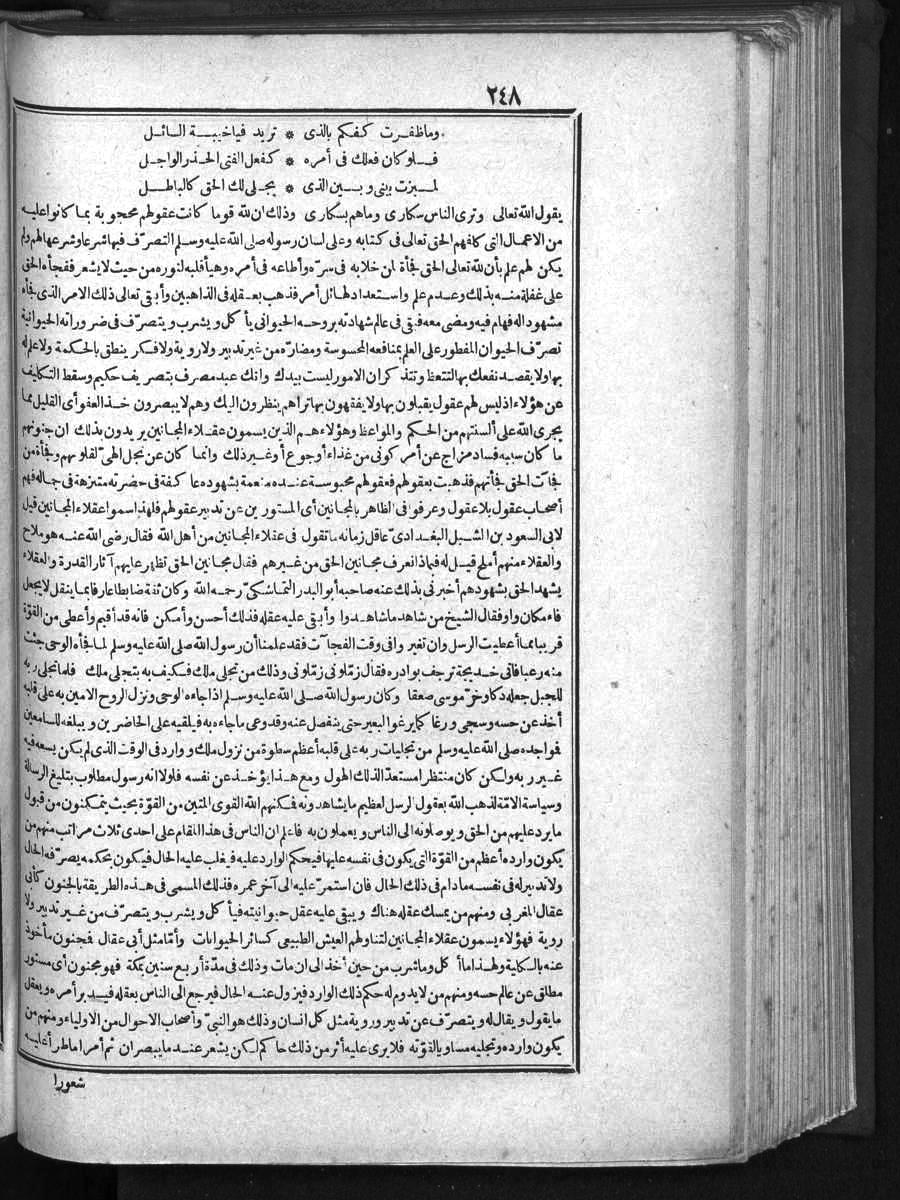 ٢٤٨
وما ظفرت كفكم بالذى * تريد فياخيبة السائل
فلو كان فعلك فى أمره * كفعل الفتى الحذر الواجل
لميزت بينى وبين الذى * يجلى لك الحق كالباطل
يقول الله تعالى وترى الناس سكارى وماهم بسكارى وذلك ان لله قوما كانت عقولهم محجوبة بما كانوا عليه
من الاعمال التى كلفهم الحق تعالى فى كتابه وعلى لسان رسوله صلى الله عليه وسلم التصرّف فيها شرعا وشرعها لهم ولم
يكن لهم علم بأن لله تعالى الحق فجأة لمن خلابه فى سرّه وأطاعه فى أمره وهيأ قلبه لنوره من حيث لا يشعر ففجأه الحق
على غفلة منه بذلك وعدم علم واستعداد لهائل أمر فذهب بعقله فى الذاهبين وأبقى تعالى ذلك الامر الذى فجأه
مشهودا له فهام فيه ومضى معه فبقى فى عالم شهادته بروحه الحيوانى يأكل ويشرب ويتصرّف فى ضروراته الحيوانية
تصرّف الحيوان المفطور على العلم بمنافعه المحسوسة ومضارّه من غير تدبير ولا روية ولا فكر ينطق بالحكمة ولا علم له
بها ولا يقصد نفعك بها لتتعظ وتتذكر ان الامور ليست بيدك وانك عبد مصرف بتصريف حكيم وسقط التكليف
عن هؤلاء اذ ليس لهم عقول يقبلون بها ولا يفقهون بها تراهم ينظرون اليك وهم لا يبصرون خذ العفو أى القليل مما
يجرى الله على ألسنتهم من الحكم والمواعظ وهؤلاء هم الذين يسمون عقلاء المجانين يريدون بذلك ان جنونهم
ما كان سببه فساد مزاج عن أمر كونى من غذاء أو جوع أو غير ذلك وانما كان عن تجلّ الهىّ لقلوبهم وفجأة من
فجآت الحق فجأتهم فذهبت بعقولهم فعقولهم محبوسة عنده منعمة بشهوده عاكفة فى حضرته متنزهة فى جماله فهم
أصحاب عقول بلا عقول وعرفوا فى الظاهر بالمجانين أى المستورين عن تدبير عقولهم فلهذا سموا عقلاء المجانين قيل
لابى السعود بن الشبل البغدادىّ عاقل زمانه ما تقول فى عقلاء المجانين من أهل الله فقال رضى الله عنه هم ملاح
والعقلاء منهم أملح قيل له فبماذا نعرف مجانين الحق من غيرهم فقال مجانين الحق تظهر عليهم آثار القدرة والعقلاء
يشهد الحق بشهودهم أخبرنى بذلك عنه صاحبه أبو البدر التماشكىّ رحمه الله وكان ثقة ضابطا عارفا بما ينقل لا يجعل
فاء مكان واو فقال الشيخ من شاهد ما شاهدوا وأبقى عليه عقله فذلك أحسن وأمكن فانه قد أقيم وأعطى من القوّة
قريبا مما أعطيت الرسل وان تغيروا فى وقت الفجآت فقد علمنا أن رسول الله صلى الله عليه وسلم لما فجأه الوحى جئث
منه رعبا فأتى خديجة ترجف بوادره فقال زمّلونى زمّلونى وذلك من تجلى ملك فكيف به بتجلى ملك فلما تجلى ربه
للجبل جعله دكا وخرّ موسى صعقا وكان رسول الله صلى الله عليه وسلم اذا جاءه الوحى ونزل الروح الامين به على قلبه
أخذ عن حسه وسجى ورغا كما يرغو البعير حتى ينفصل عنه وقد وعى ما جاءه به فيلقيه على الحاضرين ويبلغه للسامعين
فواجده صلى الله عليه وسلم من تجليات ربه على قلبه أعظم سطوة من نزول ملك ووارد فى الوقت الذى لم يكن يسعه فيه
غير ربه ولكن كان منتظرا مستعدّا لذلك الهول ومع هذا يؤخذ عن نفسه فلولا انه رسول مطلوب بتبليغ الرسالة
وسياسة الامّة لذهب الله بعقول الرسل لعظيم ما يشاهدونه فمكنهم الله القوى المتين من القوّة بحيث يتمكنون من قبول
ما يرد عليهم من الحق ويوصلونه الى الناس ويعملون به فاعلم ان الناس فى هذا المقام على احدى ثلاث مراتب منهم من
يكون وارده أعظم من القوّة التى يكون فى نفسه عليها فيحكم الوارد عليه فيغلب عليه الحال فيكون بحكمه يصرّفه الحال
ولا تدبير له فى نفسه ما دام فى ذلك الحال فان استمرّ عليه الى آخر عمره فذلك المسمى فى هذه الطريقة بالجنون كأبى
عقال المغربى ومنهم من يمسك عقله هناك ويبقى عليه عقل حيوانيته فيأكل ويشرب ويتصرّف من غير تدبير ولا
روية فهؤلاء يسمون عقلاء المجانين لتناولهم العيش الطبيعى كسائر الحيوانات وأمّا مثل أبى عقال فمجنون مأخوذ
عنه بالكلية ولهذا ما أكل وما شرب من حين أخذ الى ان مات وذلك فى مدّة أربع سنين بمكة فهو مجنون أى مستور
مطلق عن عالم حسه ومنهم من لا يدوم له حكم ذلك الوارد فيزول عنه الحال فيرجع الى الناس بعقله فيدبر أمره ويعقل
ما يقول ويقال له ويتصرّف عن تدبير وروية مثل كل انسان وذلك هو النبىّ وأصحاب الاحوال من الاولياء ومنهم من
يكون وارده وتجليه مساويا لقوّته فلا يرى عليه أثر من ذلك حاكم لكن يشعر عند ما يبصران ثم أمرا ما طرأ عليه
شعورا